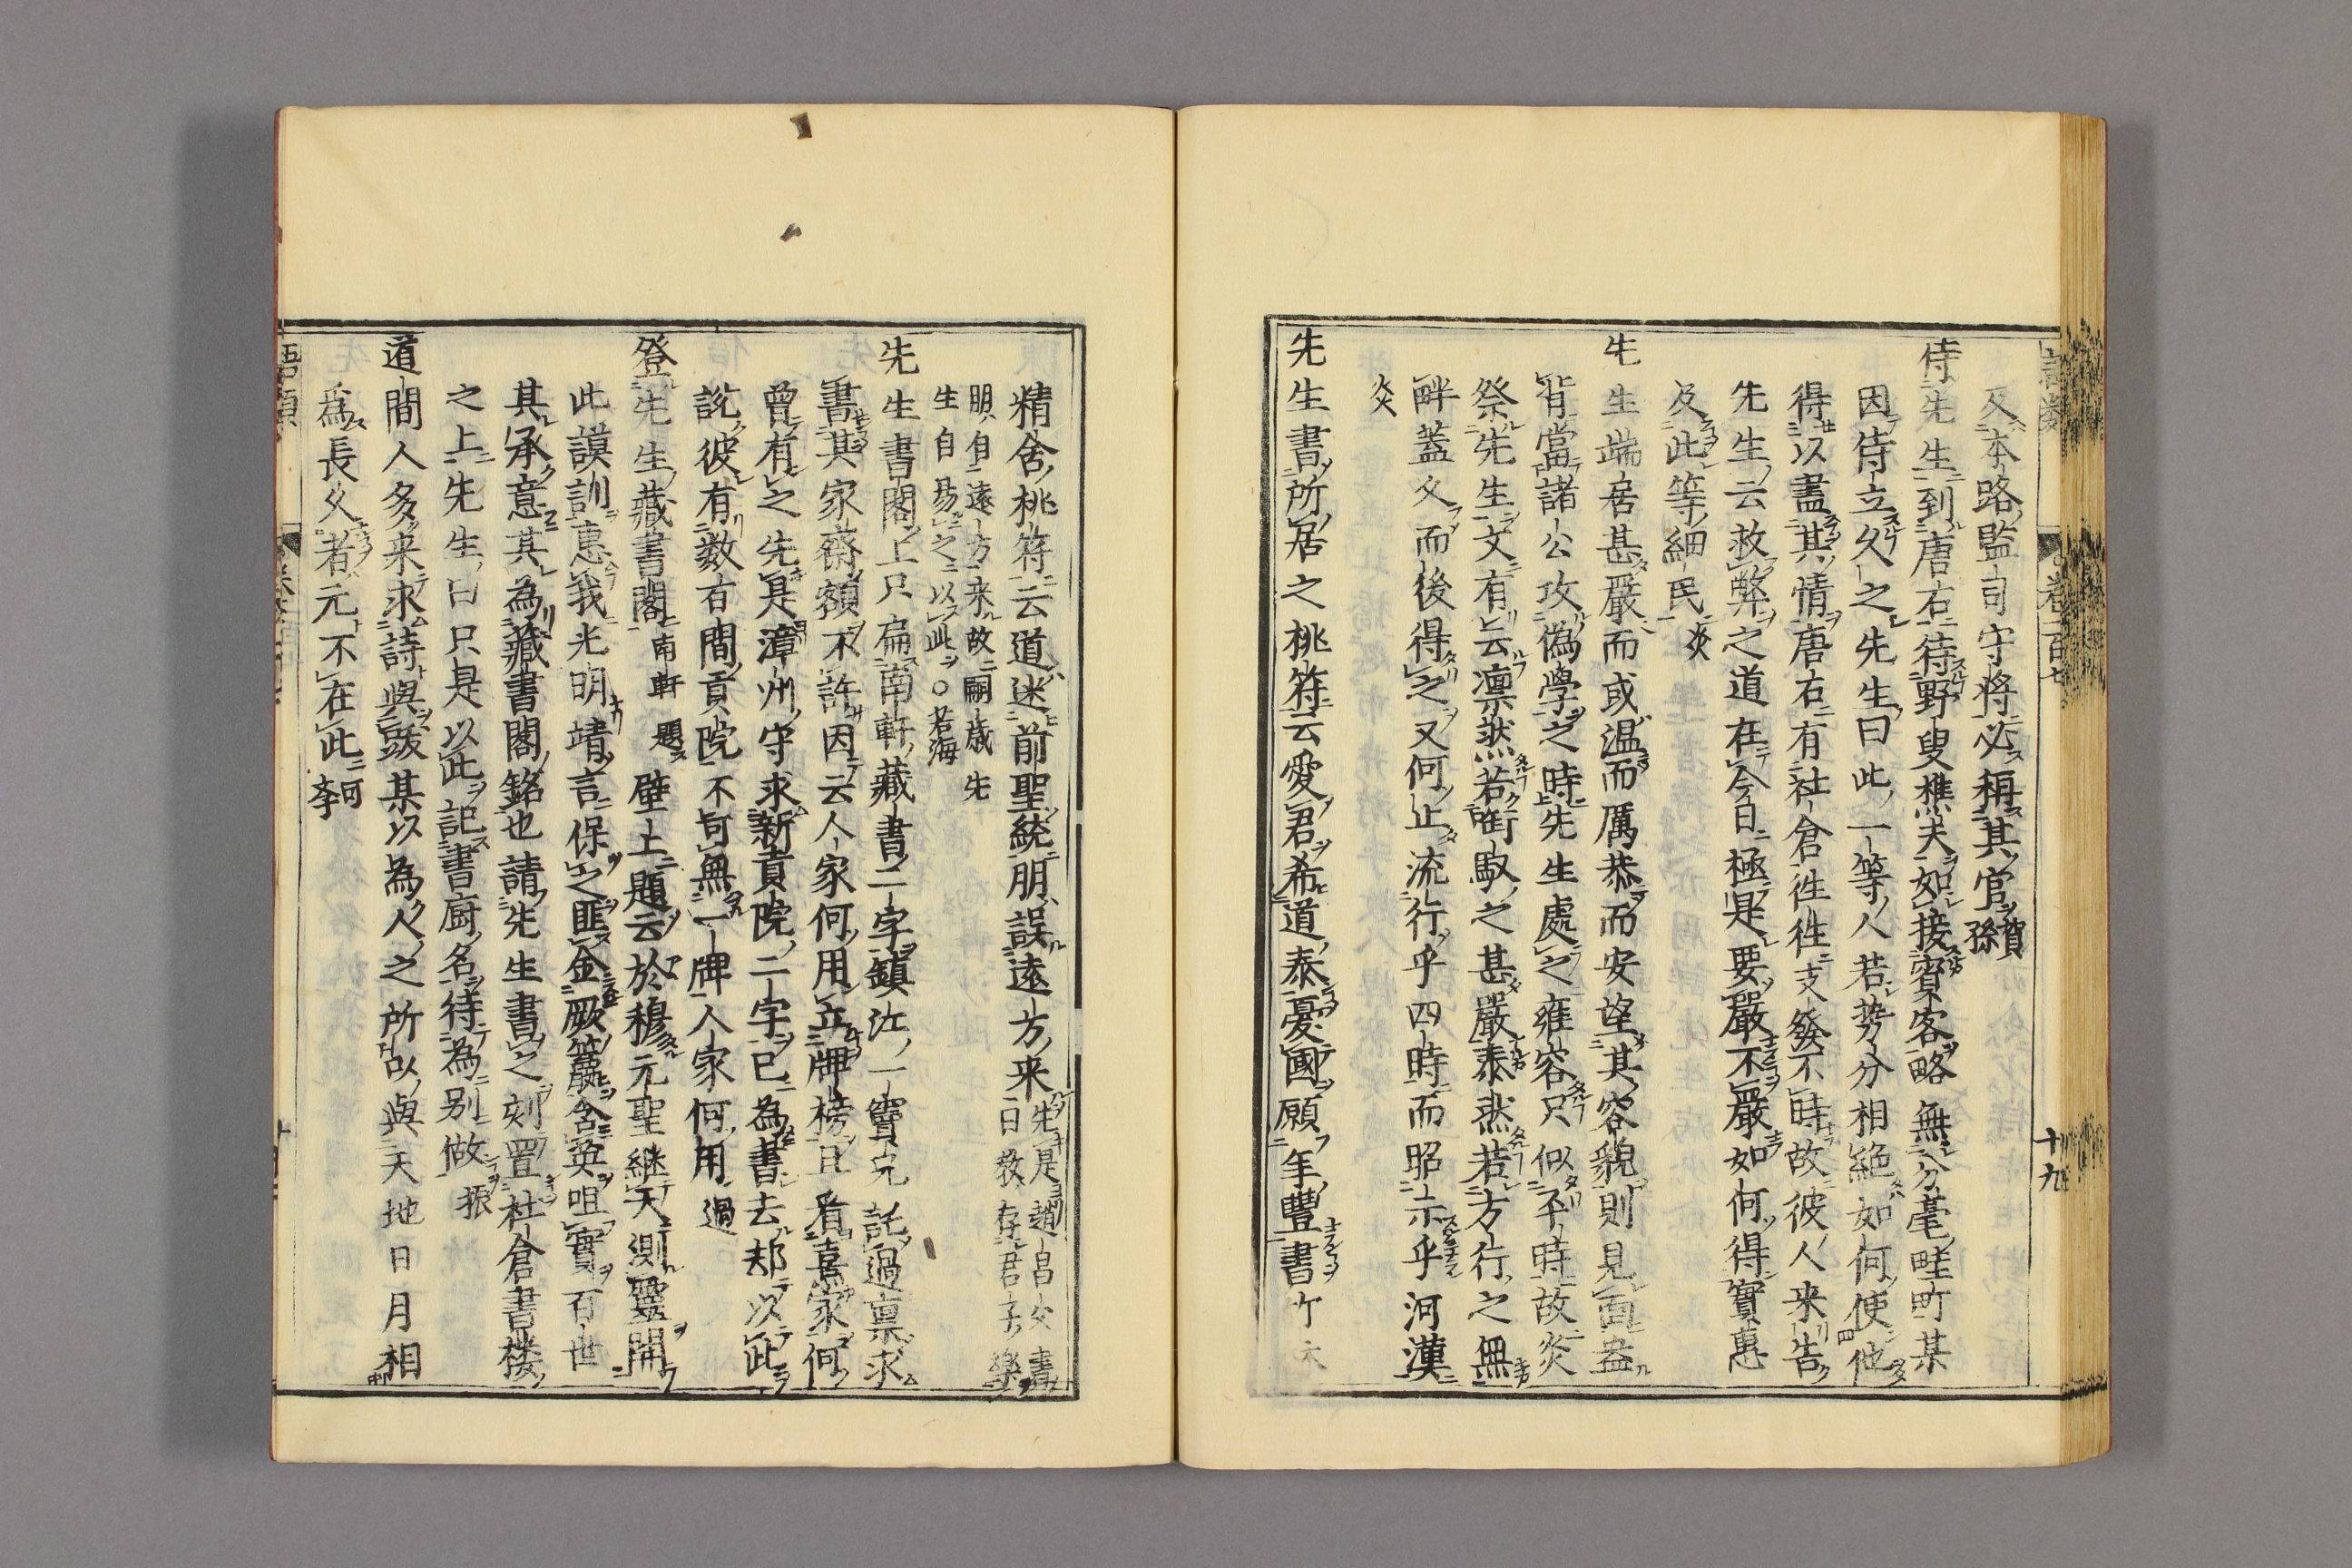 語類
卷一百七
十九
及本路監司守將必稱其官賀孫
侍先生到唐石待野叟樵夫如接賓客略無分毫畦町某
因侍立久之先生曰此一等人若勢分相絶如何使他
得以盡其情唐石有社倉往往支發不時故彼人来告
先生云救弊之道在今日極是要嚴不嚴如何得實惠
及此等細民炎
先生端居甚嚴而或温而厲恭而安望其容貌則見面盎
背當諸公攻偽學之時先生處之雍容只似平時故炎
祭先生文有云凛然若銜馭之甚嚴泰然若方行之無
畔蓋久而後得之又何止流行乎四時而昭示乎河漢
炎
先生書所居之桃符云愛君希道泰憂國願年豐書竹大
精舍桃符云道迷前聖統朋誤遠方来先是趙昌父書
曰敎存君子樂
朋自遠方来故嗣歲先
生自易之以此○若海
先生書閣上只扁南軒藏書二字鎮江一竇兄託過禀求
書其家齋額不許因云人家何用立牌榜且看熹家何
曾有之先是漳州守求新貢院二字已為書去却以此
說彼有數右間貢院不可無一牌人家何用過
登先生藏書閣南軒題壁上題云於穆元聖繼天測靈開
此謨訓惠我光明靖言保之匪金厥籯含英咀實百世
其承意其為藏書閣銘也請先生書之刻置社倉書楼
之上先生曰只是以此記書厨名待為别做振
道間人多来求詩與跋某以為人之所以與天地日月相
為長久者元不在此李可
語類